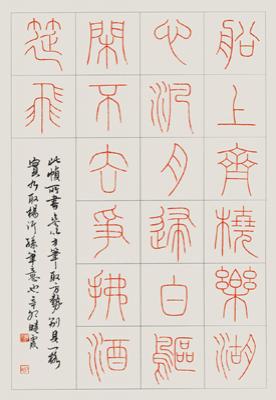 船上齊橈樂湖
心汎月歸白鷗
閑不去爭拂酒
筵飛
此幀所書是以方筆取方勢別具一格
實乃取楊沂孫筆意也辛卯曉霞